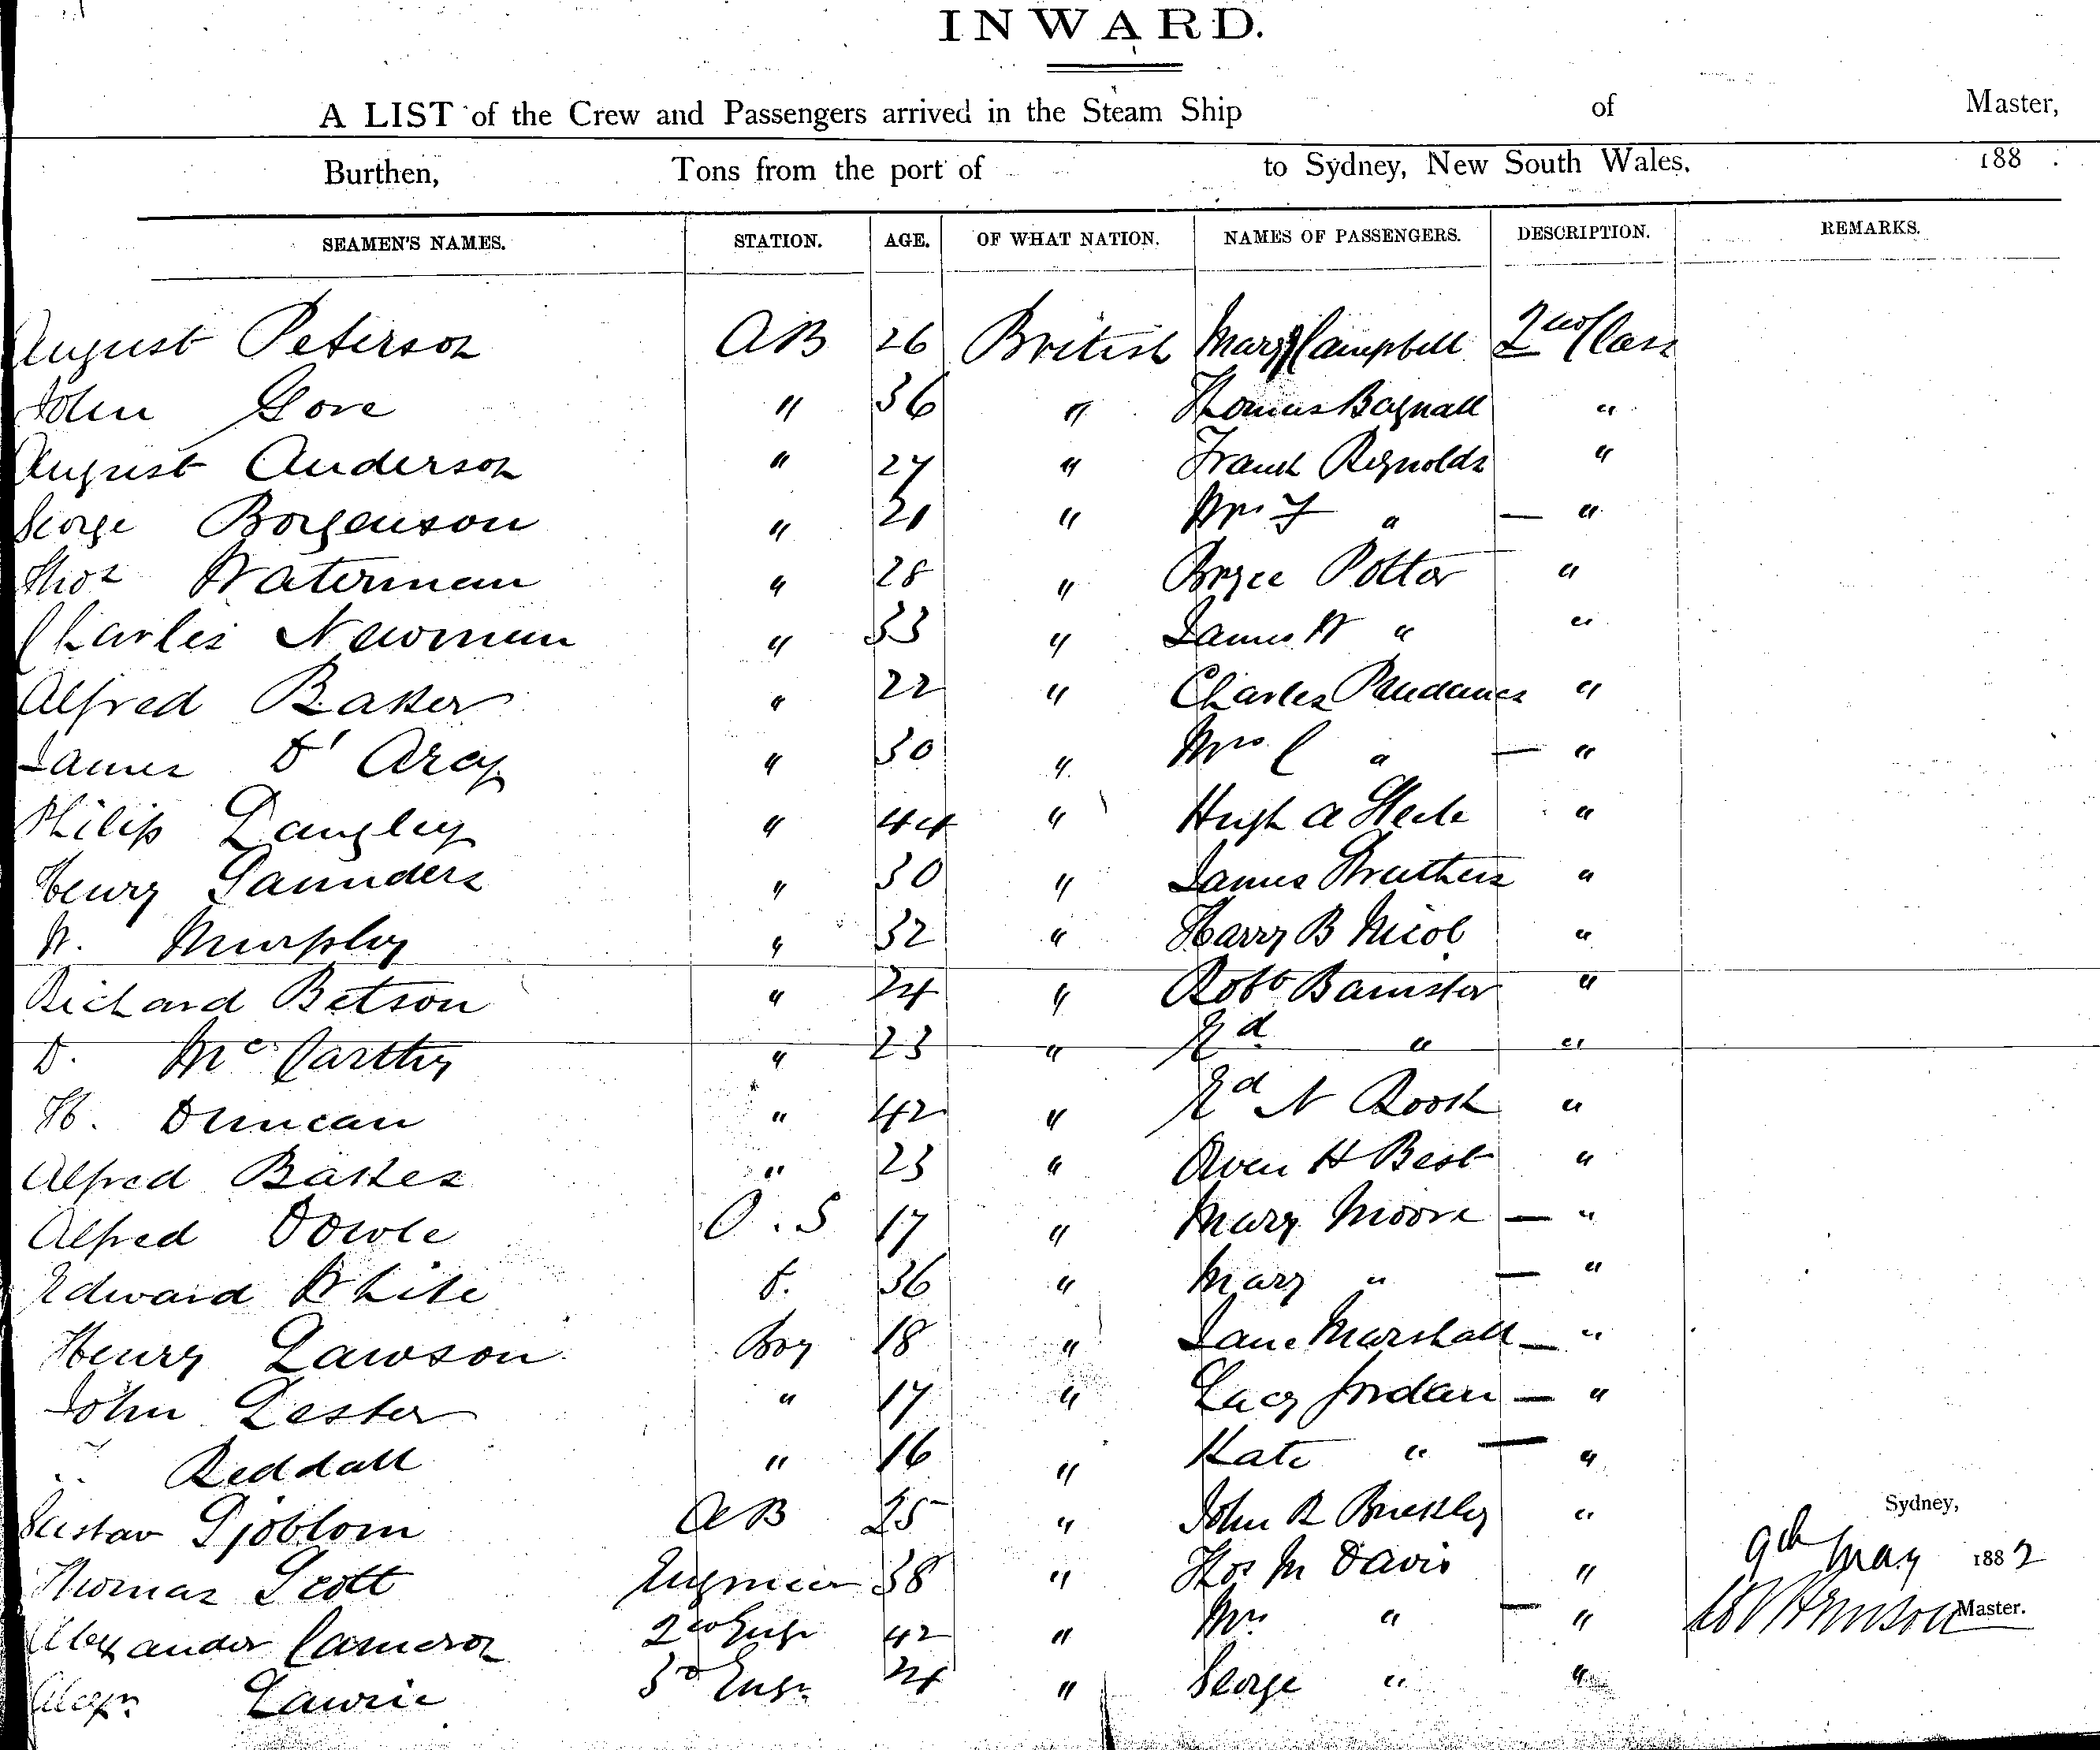 INWARD.
A LIST of the Crew and Passengers arrived in the Steam Ship of Master,
Burthen, Tons from the port of to Sydney, New South Wales. 188 .
SEAMEN'S NAMES. STATION. AGE. OF WHAT NATION. NAMES OF PASSENGERS. DESCRIPTION. REMARKS.
August Peterson AB 26 British Mary Campbell 2nd Class
John Gore " 36 " Thomas Bagnall "
August Anderson " 27 " Frank Reynolds "
George Borgenson " 21 " Mrs F " — "
Thos Waterman " 28 " Bryce Potter "
Charles Newman " 33 " James W " "
Alfred Baker " 22 " Charles "
James D'Arcy " 30 " Mrs C " — "
Philip Langley " 44 " Hugh A Steele "
Henry Saunders " 30 " James Struthers "
W. Murphy " 32 " Harry B Nicol "
Richard Betson " 24 " Robt Banister "
D. McCarthy " 23 " Ed " "
H. Duncan " 42 " Ed N Rook "
Alfred Bakes " 23 " Owen H Best "
Alfred Dowle O.S 17 " Mary Moore — "
Edward White " 36 " Mary " — "
Henry Lawson Boy 18 " Jane Marshall — "
John Lester " 17 " Lucy Jordan — "
" Reddall " 16 " Kate " — "
Gustav Sjoblom AB 25 " John R Buckley "
Sydney,
Thomas Scott Engineer 38 " Thos M Davis "
9th May 1882
Alexander Cameron 2nd Engr 42 " Mrs " — "
Master.
Alexr Lawrie 3rd Engr 24 " George " "